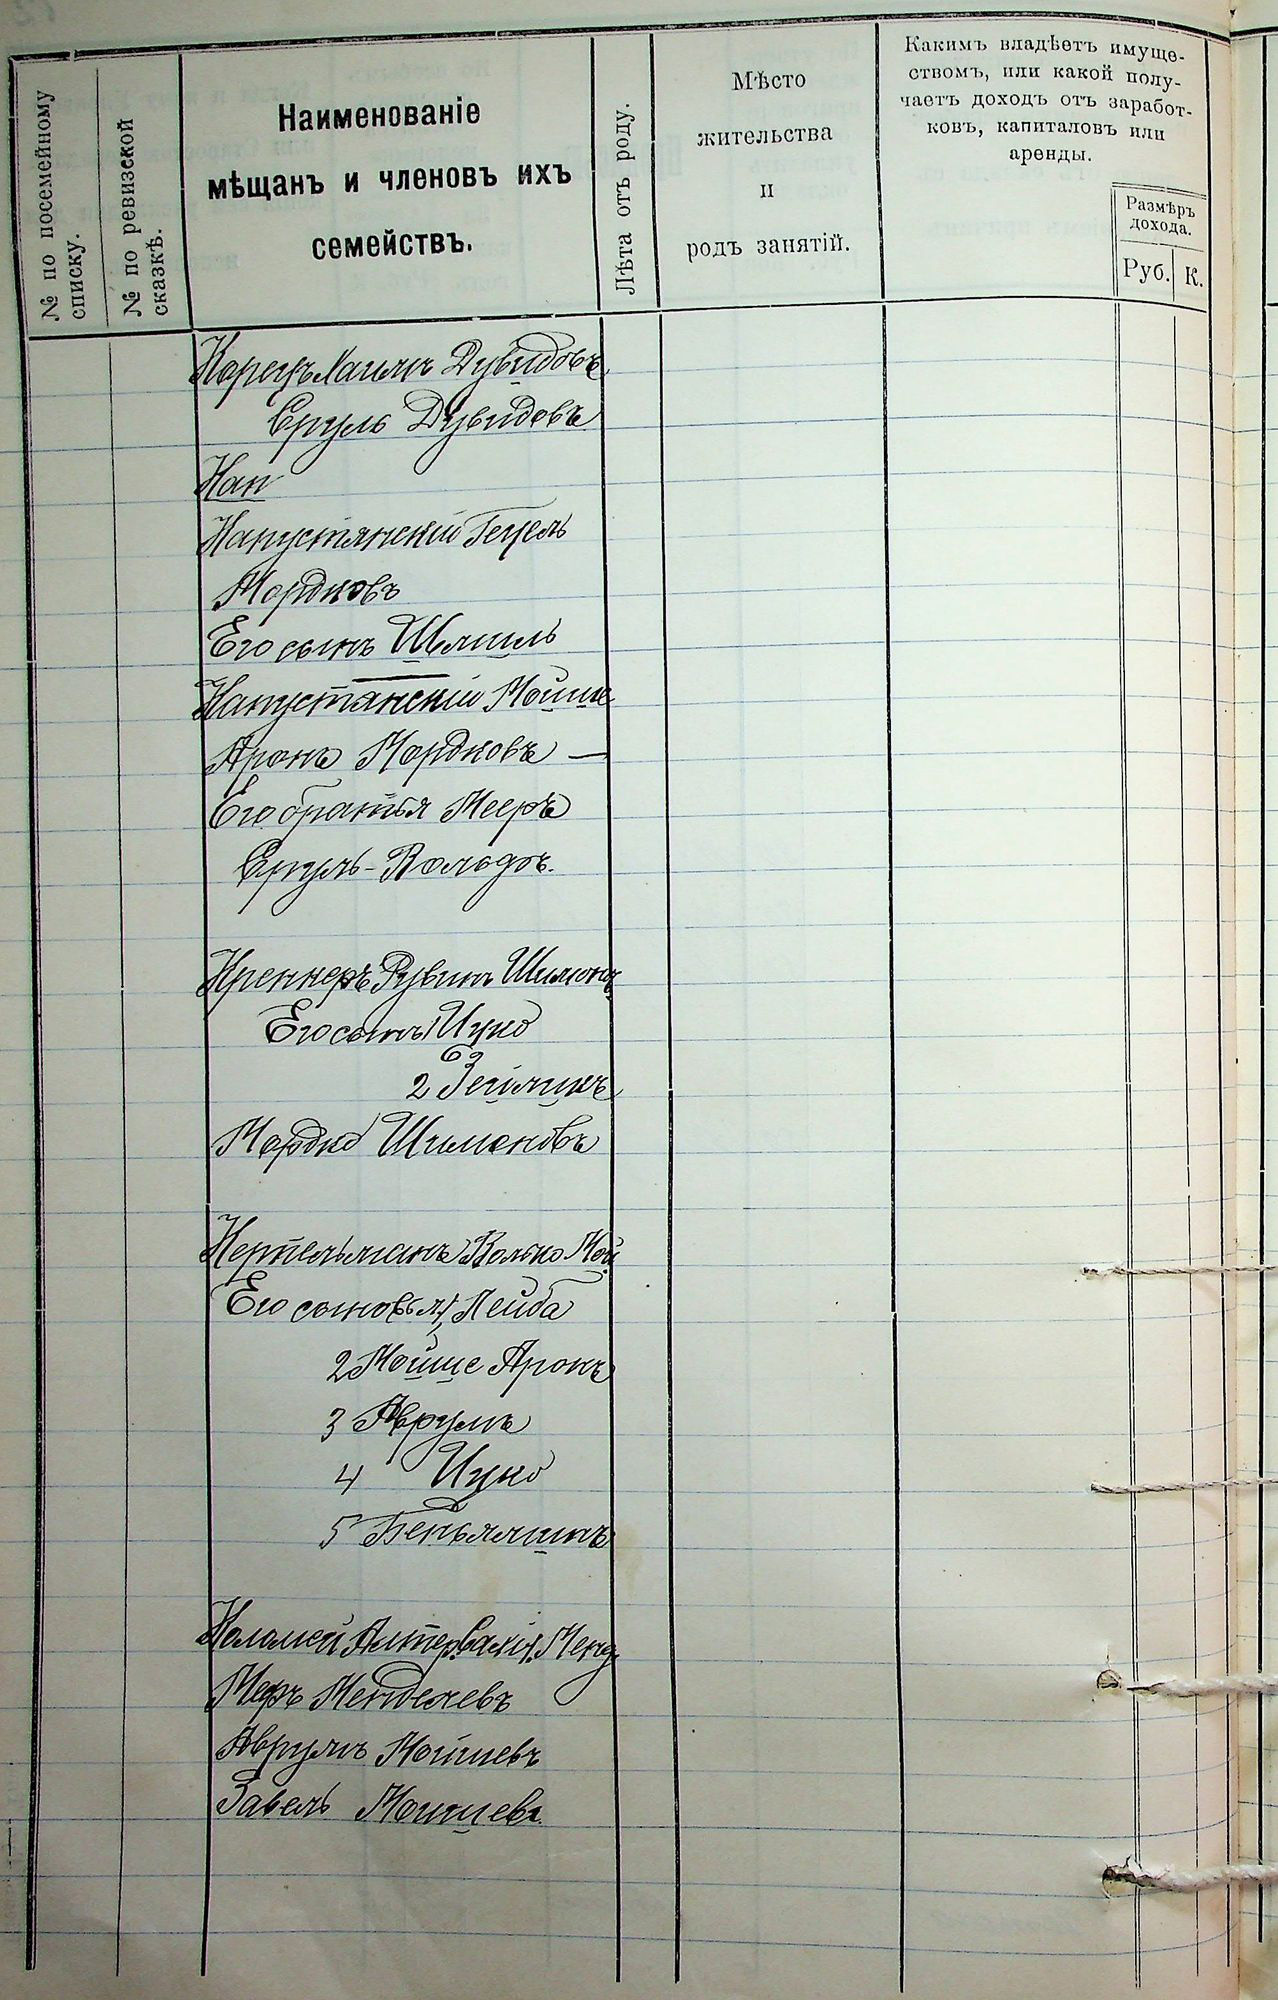 № по посемейному
списку.
№ по ревизской
сказкѣ.
Наименованіе
мѣщанъ и членовъ ихъ
семействъ.
Лѣта отъ роду.
Мѣсто
жительства
и
родъ занятій.
Какимъ владѣетъ имуще-
ствомъ, или какой полу-
чаетъ доходъ отъ заработ-
ковъ, капиталовъ или
аренды.
Размѣръ
дохода.
Руб.
К.
Корецъ Хаимъ Дувидовъ
Сруль Дувидовъ
Кап
Капустянскій Гецель
Мордковъ
Его сынъ Шмиль
Капустянскій Мойше
Аронъ Мордковъ —
Его братья Мееръ
Сруль-Вольфъ.
Креннеръ Рувинъ Шимонъ
Его сынъ Ицко
2 Зейликъ
Мордко Шимоновъ
Кертельманъ Волько Мой
Его сыновья 1, Лейба
2 Мойше Аронъ
3 Аврумъ
4 Ицко
5 Беньяминъ
Коломей Менд.
Меръ Менделевъ
Аврумъ Мойшевъ
Завель Мошкевъ